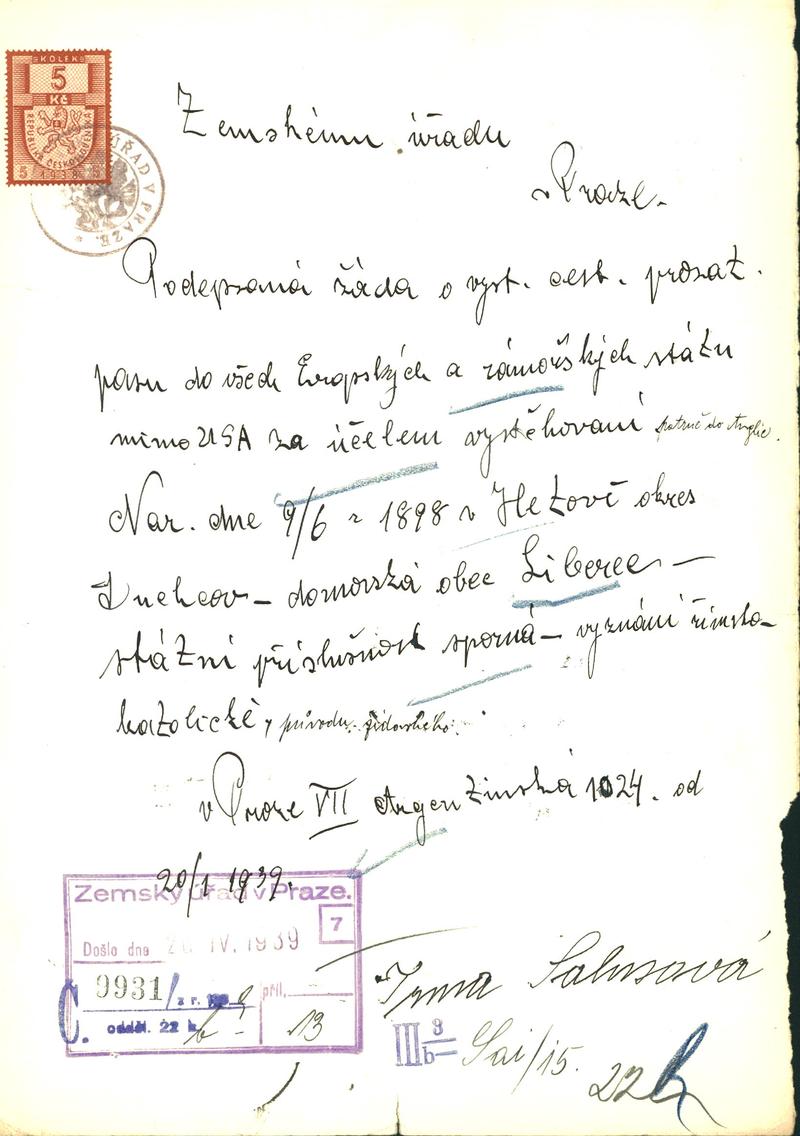 KOLEK
5
Kč
REPUBLIKA ČESKOSLOVENSKÁ
5 1938
ÚŘAD V PRAZE
Zemskému úřadu
v Praze.
Podepsaná žáda o vyst. cest. prozat.
pasu do všech Evropských a zámořských státu
mimo USA za účelem vystěhovaní patrně do Anglie.
Nar. dne 9/6 r 1898 v okres
Duchcov – domovská obec Liberec –
státní příslušnost sporná – vyznání římsko-
katolické, původu židovského.
v Praze VII Argentinská 1024. od
20/1 1939.
Zemský úřad v Praze.
7
Došlo dne IV. 1939
Č. 9931/ z r.
příl.
odděl. 22
13
Irma Salusová
III 3/b
Sai/15.
22